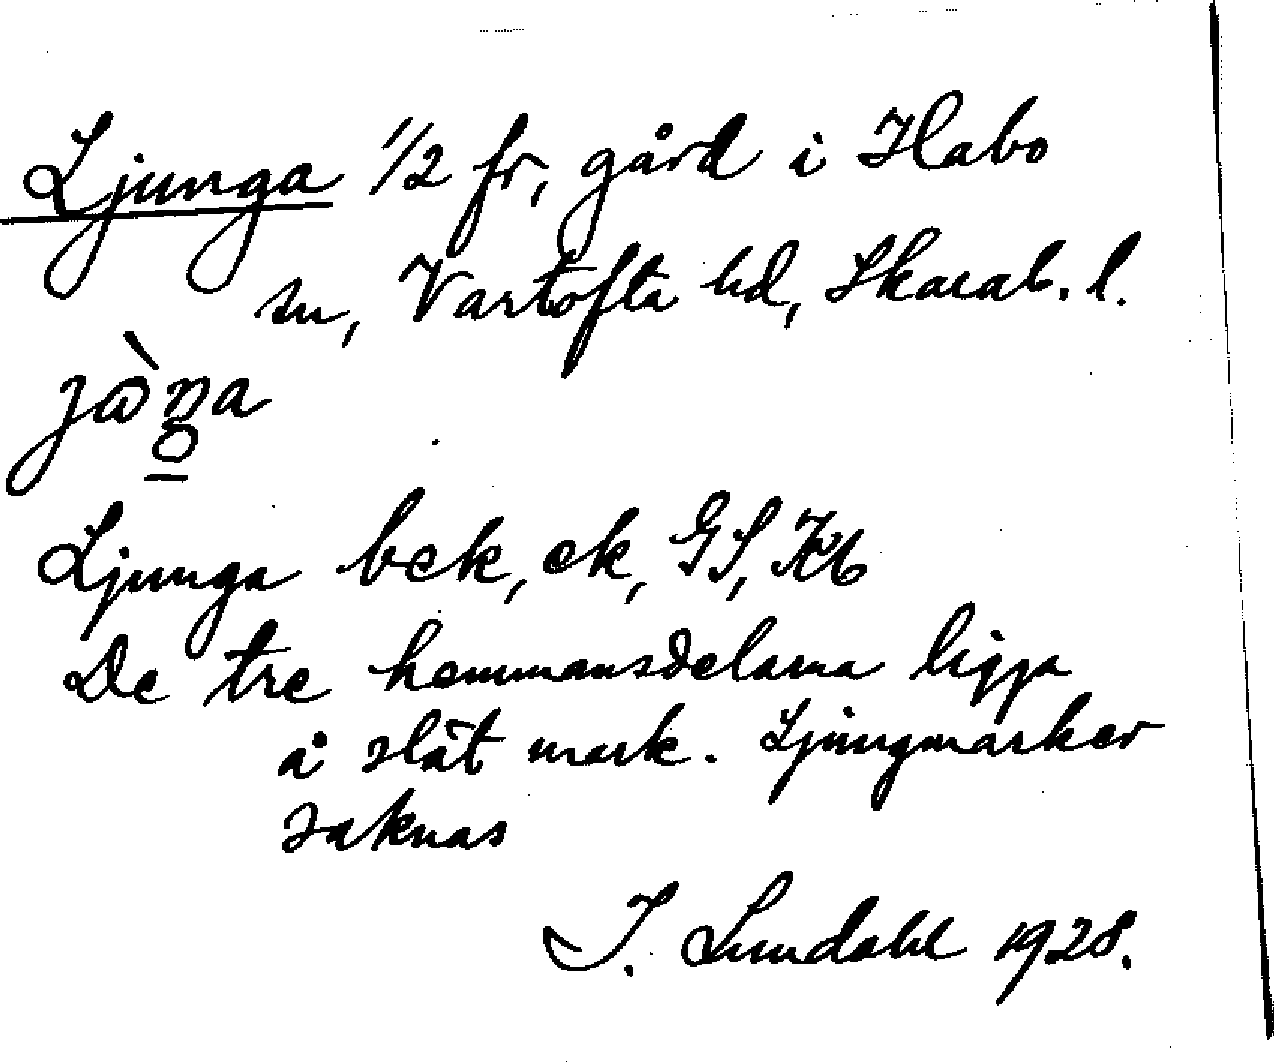 Ljunga 1/2 fr, gård i Habo
sn, Vartofta hd, Skarab. l.
jòŋa
Ljunga bek, ek, GS, Kb
De tre hemmansdelarna ligga
å slät mark. Ljungmarker
saknas
I. Lundahl 1928.